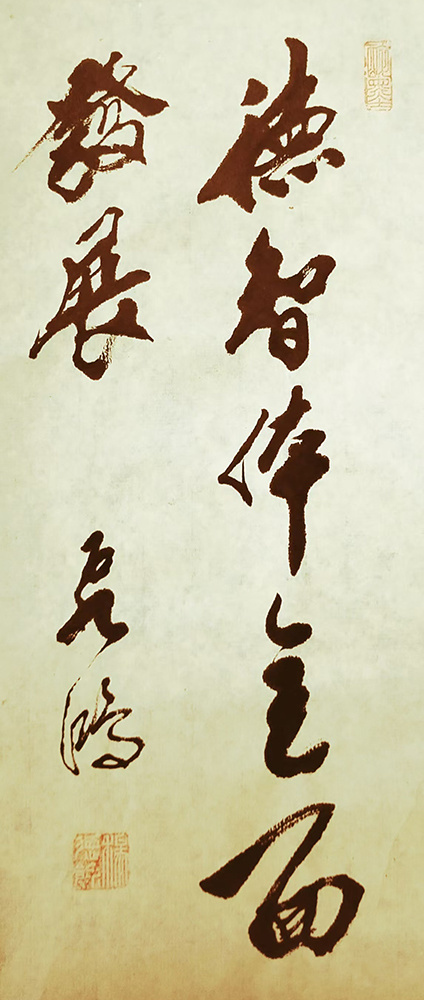 德智体全面
發展